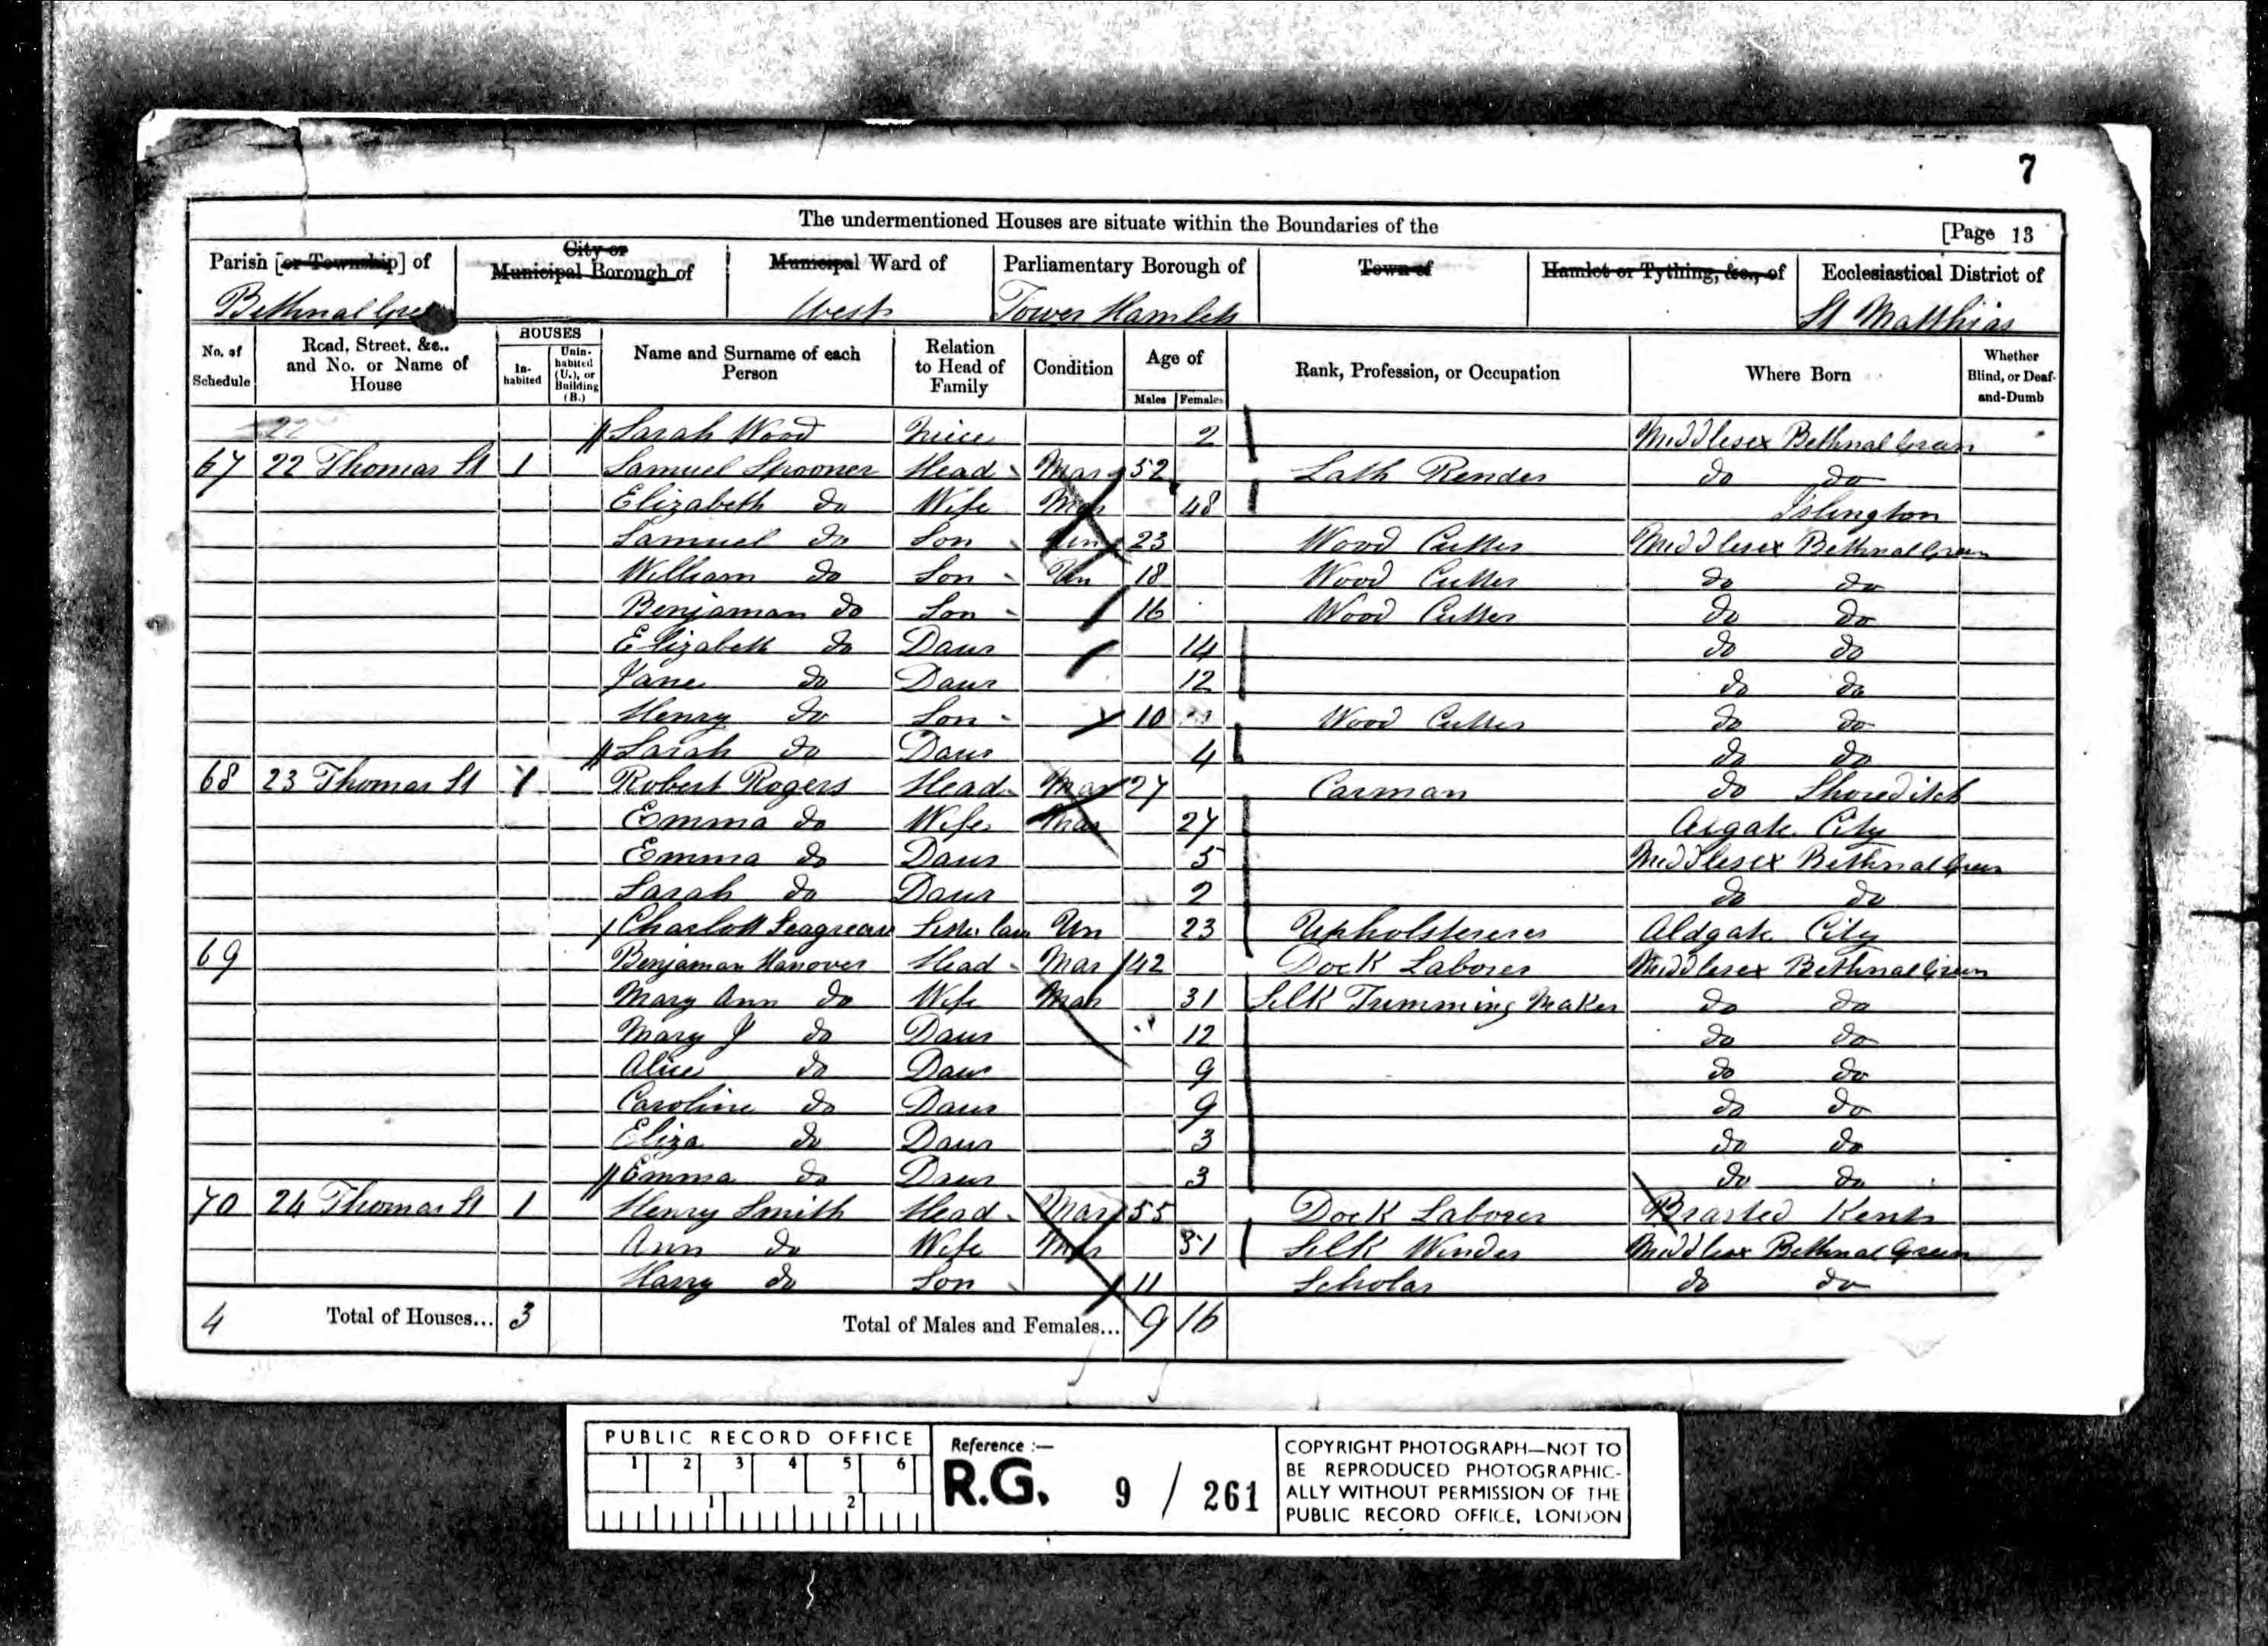 7
The undermentioned Houses are situate within the Boundaries of the
[Page 13
Parish [or Township] of
City or Municipal Borough of
Municipal Ward of
Parliamentary Borough of
Town of
Hamlet or Tything, &c., of
Ecclesiastical District of
Bethnal Green West Tower Hamlets St Matthias
No. of Schedule
Road, Street, &c., and No. or Name of House
HOUSES
In-habited
Unin-habited (U.), or Building (B.)
Name and Surname of each Person
Relation to Head of Family
Condition
Age of
Males Females
Rank, Profession, or Occupation
Where Born
Whether Blind, or Deaf-and-Dumb
22 Sarah Wood Niece 2 Middlesex Bethnal Green
67 22 Thomas St 1 Samuel Spooner Head Mar 52 Lath Render do do
Elizabeth do Wife Mar 48 Islington
Samuel do Son Un 23 Wood Cutter Middlesex Bethnal Green
William do Son Un 18 Wood Cutter do do
Benjaman do Son 16 Wood Cutter do do
Elizabeth do Daur 14 do do
Jane do Daur 12 do do
Henry do Son 10 Wood Cutter do do
Sarah do Daur 4 do do
68 23 Thomas St 1 Robert Rogers Head Mar 27 Carman do Shoreditch
Emma do Wife Mar 27 Algate City
Emma do Daur 5 Middlesex Bethnal Green
Sarah do Daur 2 do do
Charlott Un 23 Upholsterer Aldgate City
69 Benjaman Hanover Head Mar 42 Dock Laborer Middlesex Bethnal Green
Mary Ann do Wife Mar 31 Silk Trimming Maker do do
Mary J do Daur 12 do do
Alice do Daur 9 do do
Caroline do Daur 9 do do
Eliza do Daur 3 do do
Emma do Daur 3 do do
70 24 Thomas St 1 Henry Smith Head Mar 55 Dock Laborer Brasted Kent
Ann do Wife Mar Silk Winder Middlesex Bethnal Green
Harry do Son 11 Scholar do do
4 Total of Houses... 3 Total of Males and Females... 9 16
PUBLIC RECORD OFFICE
1 2 3 4 5 6
1 2
Reference :—
R.G. 9 / 261
COPYRIGHT PHOTOGRAPH—NOT TO
BE REPRODUCED PHOTOGRAPHIC-
ALLY WITHOUT PERMISSION OF THE
PUBLIC RECORD OFFICE, LONDON